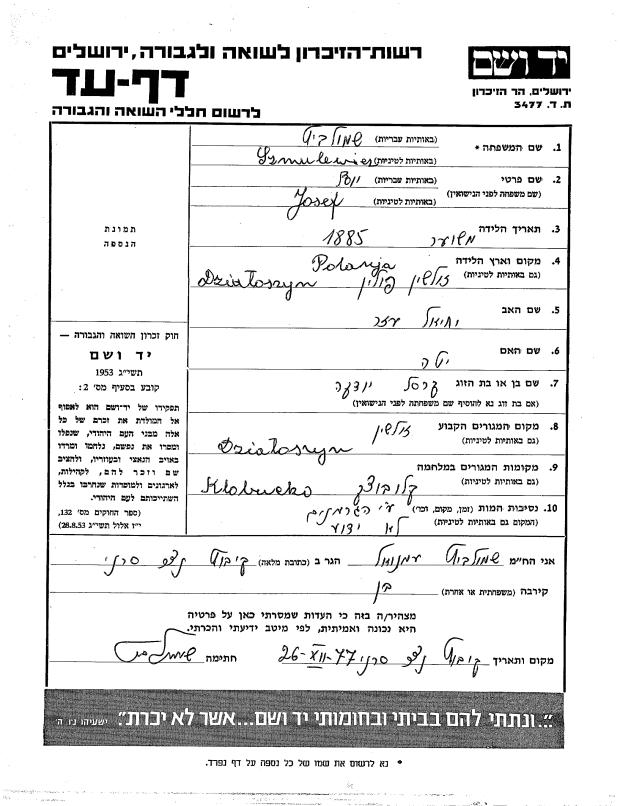 רשות-הזיכרון לשואה ולגבורה, ירושלים
יד ושם
דף-עד
ירושלים, הר הזיכרון
ת. ד. 3477
לרשום חללי השואה והגבורה
1. שם המשפחה * (באותיות עבריות) שמולביץ
(באותיות לטיניות) Szmulewicz
2. שם פרטי (באותיות עבריות) יוסף
(שם משפחה לפני הנישואין) (באותיות לטיניות) Josef
3. תאריך הלידה משוער 1885
4. מקום וארץ הלידה Polanja
(גם באותיות לטיניות) זלושין פולין Działoszyn
5. שם האב יחיאל עזר
6. שם האם יטה
7. שם בן או בת הזוג
(אם בת זוג נא להוסיף שם משפחתה לפני הנישואין)
8. מקום המגורים הקבוע זלושין
(גם באותיות לטיניות) Działoszyn
9. מקומות המגורים במלחמה קלובוצק
(גם באותיות לטיניות) Kłobucko
10. נסיבות המות (זמן, מקום, וכו') ע"י הגרמנים
(המקום גם באותיות לטיניות) לא ידוע
תמונת
הנספה
חוק זכרון השואה והגבורה —
יד ושם
תשי"ג 1953
קובע בסעיף מס' 2:
תפקידו של יד-ושם הוא לאסוף
אל המולדת את זכרם של כל
אלה מבני העם היהודי, שנפלו
ומסרו את נפשם, נלחמו ומרדו
באויב הנאצי ובעוזריו, ולהציב
שם וזכר להם, לקהילות,
לארגונים ולמוסדות שנחרבו בגלל
השתייכותם לעם היהודי.
(ספר החוקים מס' 132,
י"ז אלול תשי"ג 28.8.53)
אני הח"מ שמולביץ עמנואל הגר ב (כתובת מלאה) קיבוץ נצר סרני
קירבה (משפחתית או אחרת) בן
מצהיר/ה בזה כי העדות שמסרתי כאן על פרטיה
היא נכונה ואמיתית, לפי מיטב ידיעתי והכרתי.
מקום ותאריך קיבוץ נצר סרני 26-XII-77 חתימה
"...ונתתי להם בביתי ובחומותי יד ושם...אשר לא יכרת". ישעיהו נ"ו ה'
* נא לרשום את שמו של כל נספה על דף נפרד.